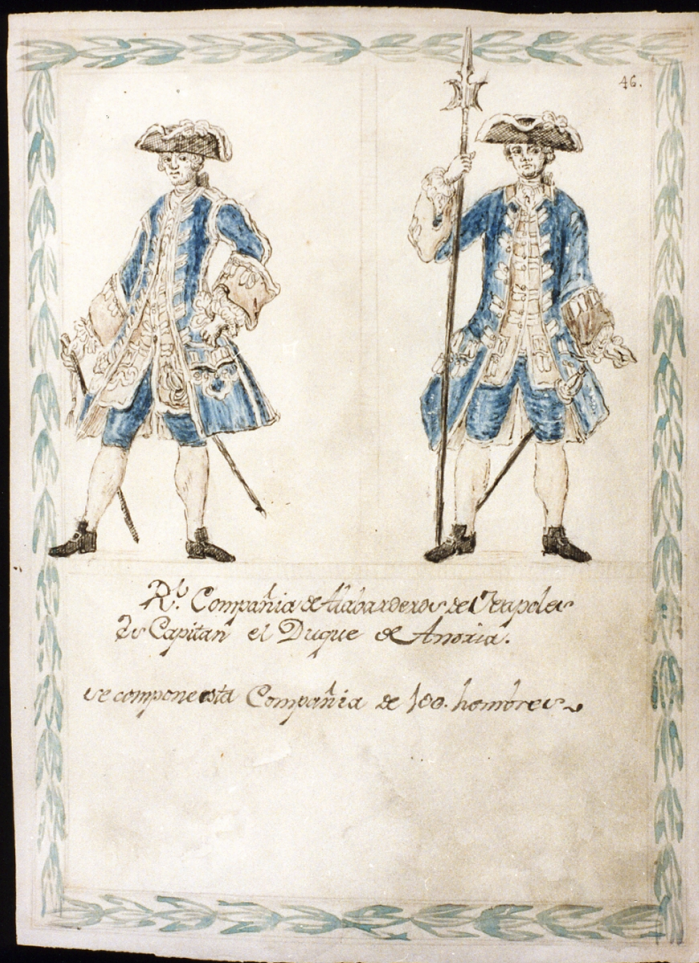 46.
Rl. Compañia de Alabarderos de Neapoles
Es Capitan el Duque de Andria.
se compone esta Compañia de 100. hombres